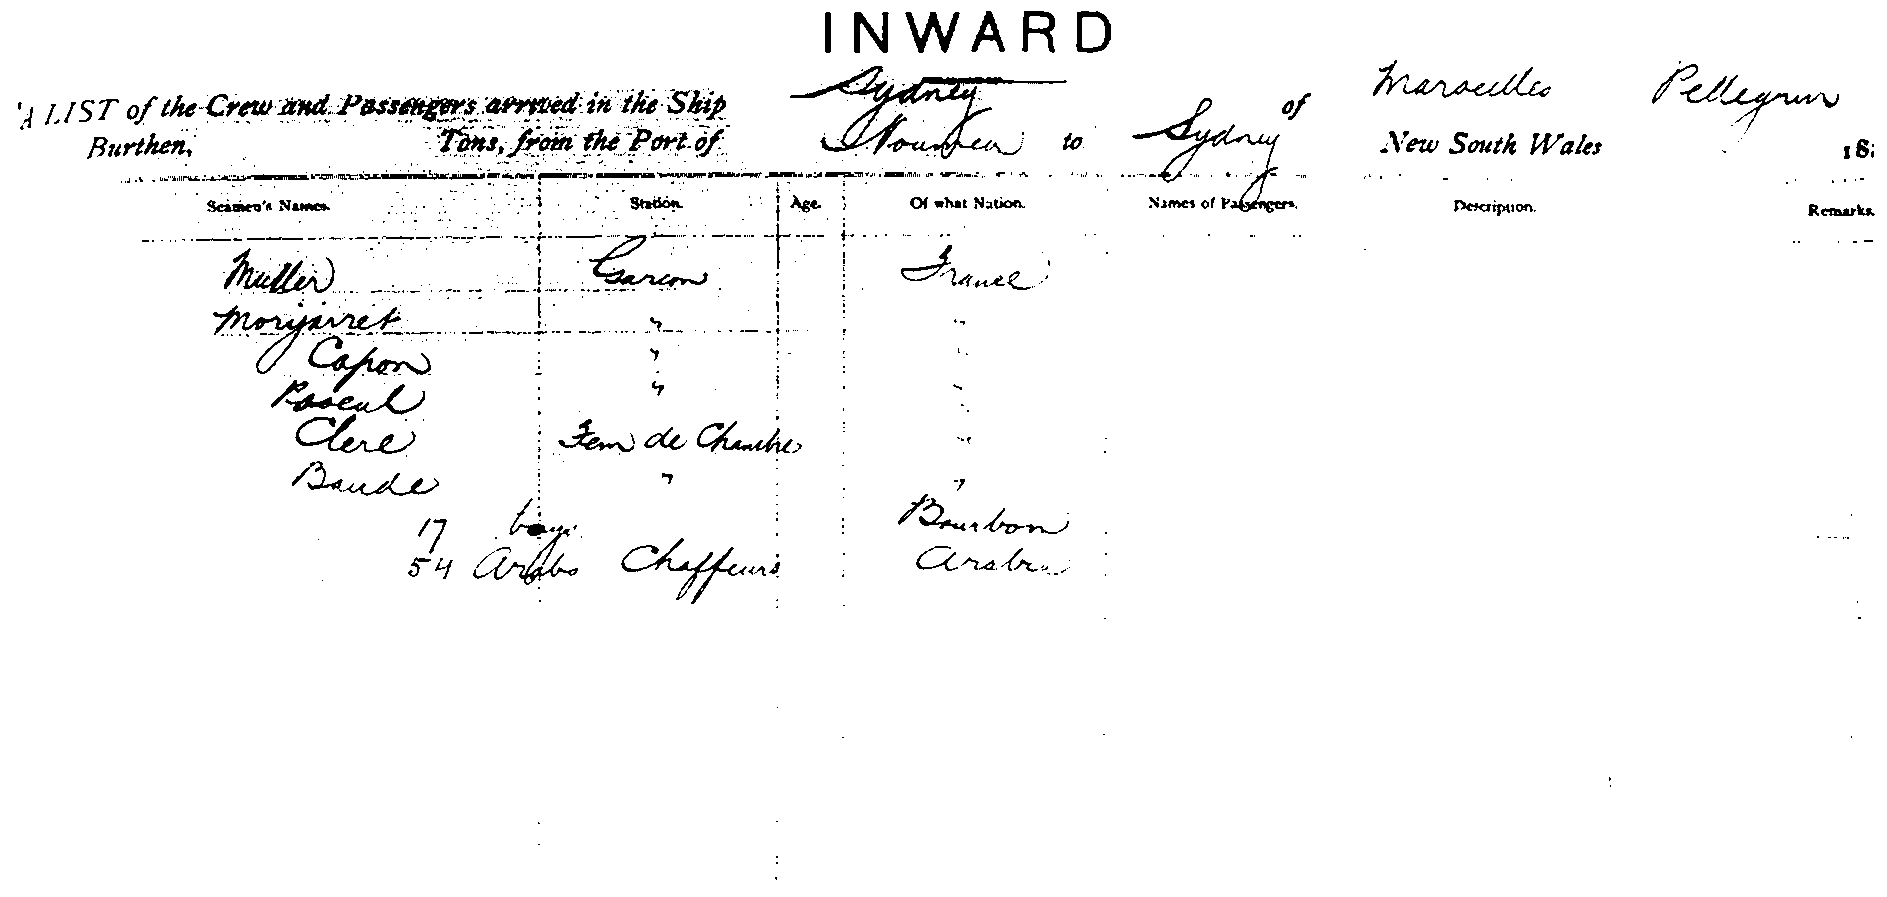 INWARD
A LIST of the Crew and Passengers arrived in the Ship Sydney of Marseilles Pellegrin
Burthen, Tons, from the Port of Noumea to Sydney New South Wales 18
Seamen's Names. Station. Age. Of what Nation. Names of Passengers. Description. Remarks.
Muller Garcon France
" "
Capon " "
Pascal " "
Clere Fem de Chambre "
Baude " "
17 boys Bourbon
54 Arabs Chaffeurs Arabia